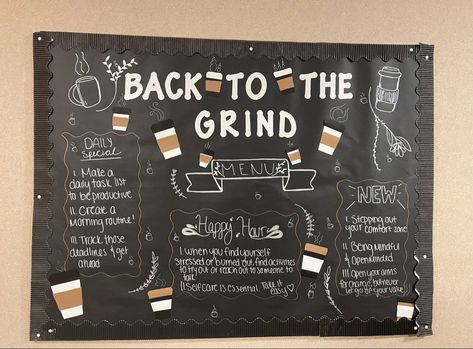 BACK TO THE
GRIND
MENU
DAILY
Special
I. Make a
daily task list
to be productive
II. Create a
Morning routine!
III. Track those
deadlines & get
ahead
Happy Hour
I when you find yourself
stressed or burned out, find activities
to try out or reach out to someone to
talk
II Selfcare is Essential. Take it
easy
NEW
I. Stepping out
your comfort zone
II. Being mindful
& openminded
III. Open your arms
for change, but never
let go of your value